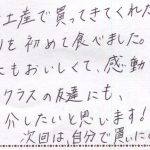 土産で買ってきてくれた
を初めて食べました。
もおいしくて、感動
クラスの友達にも、
介したいと思います!
次回は、自分で買いに